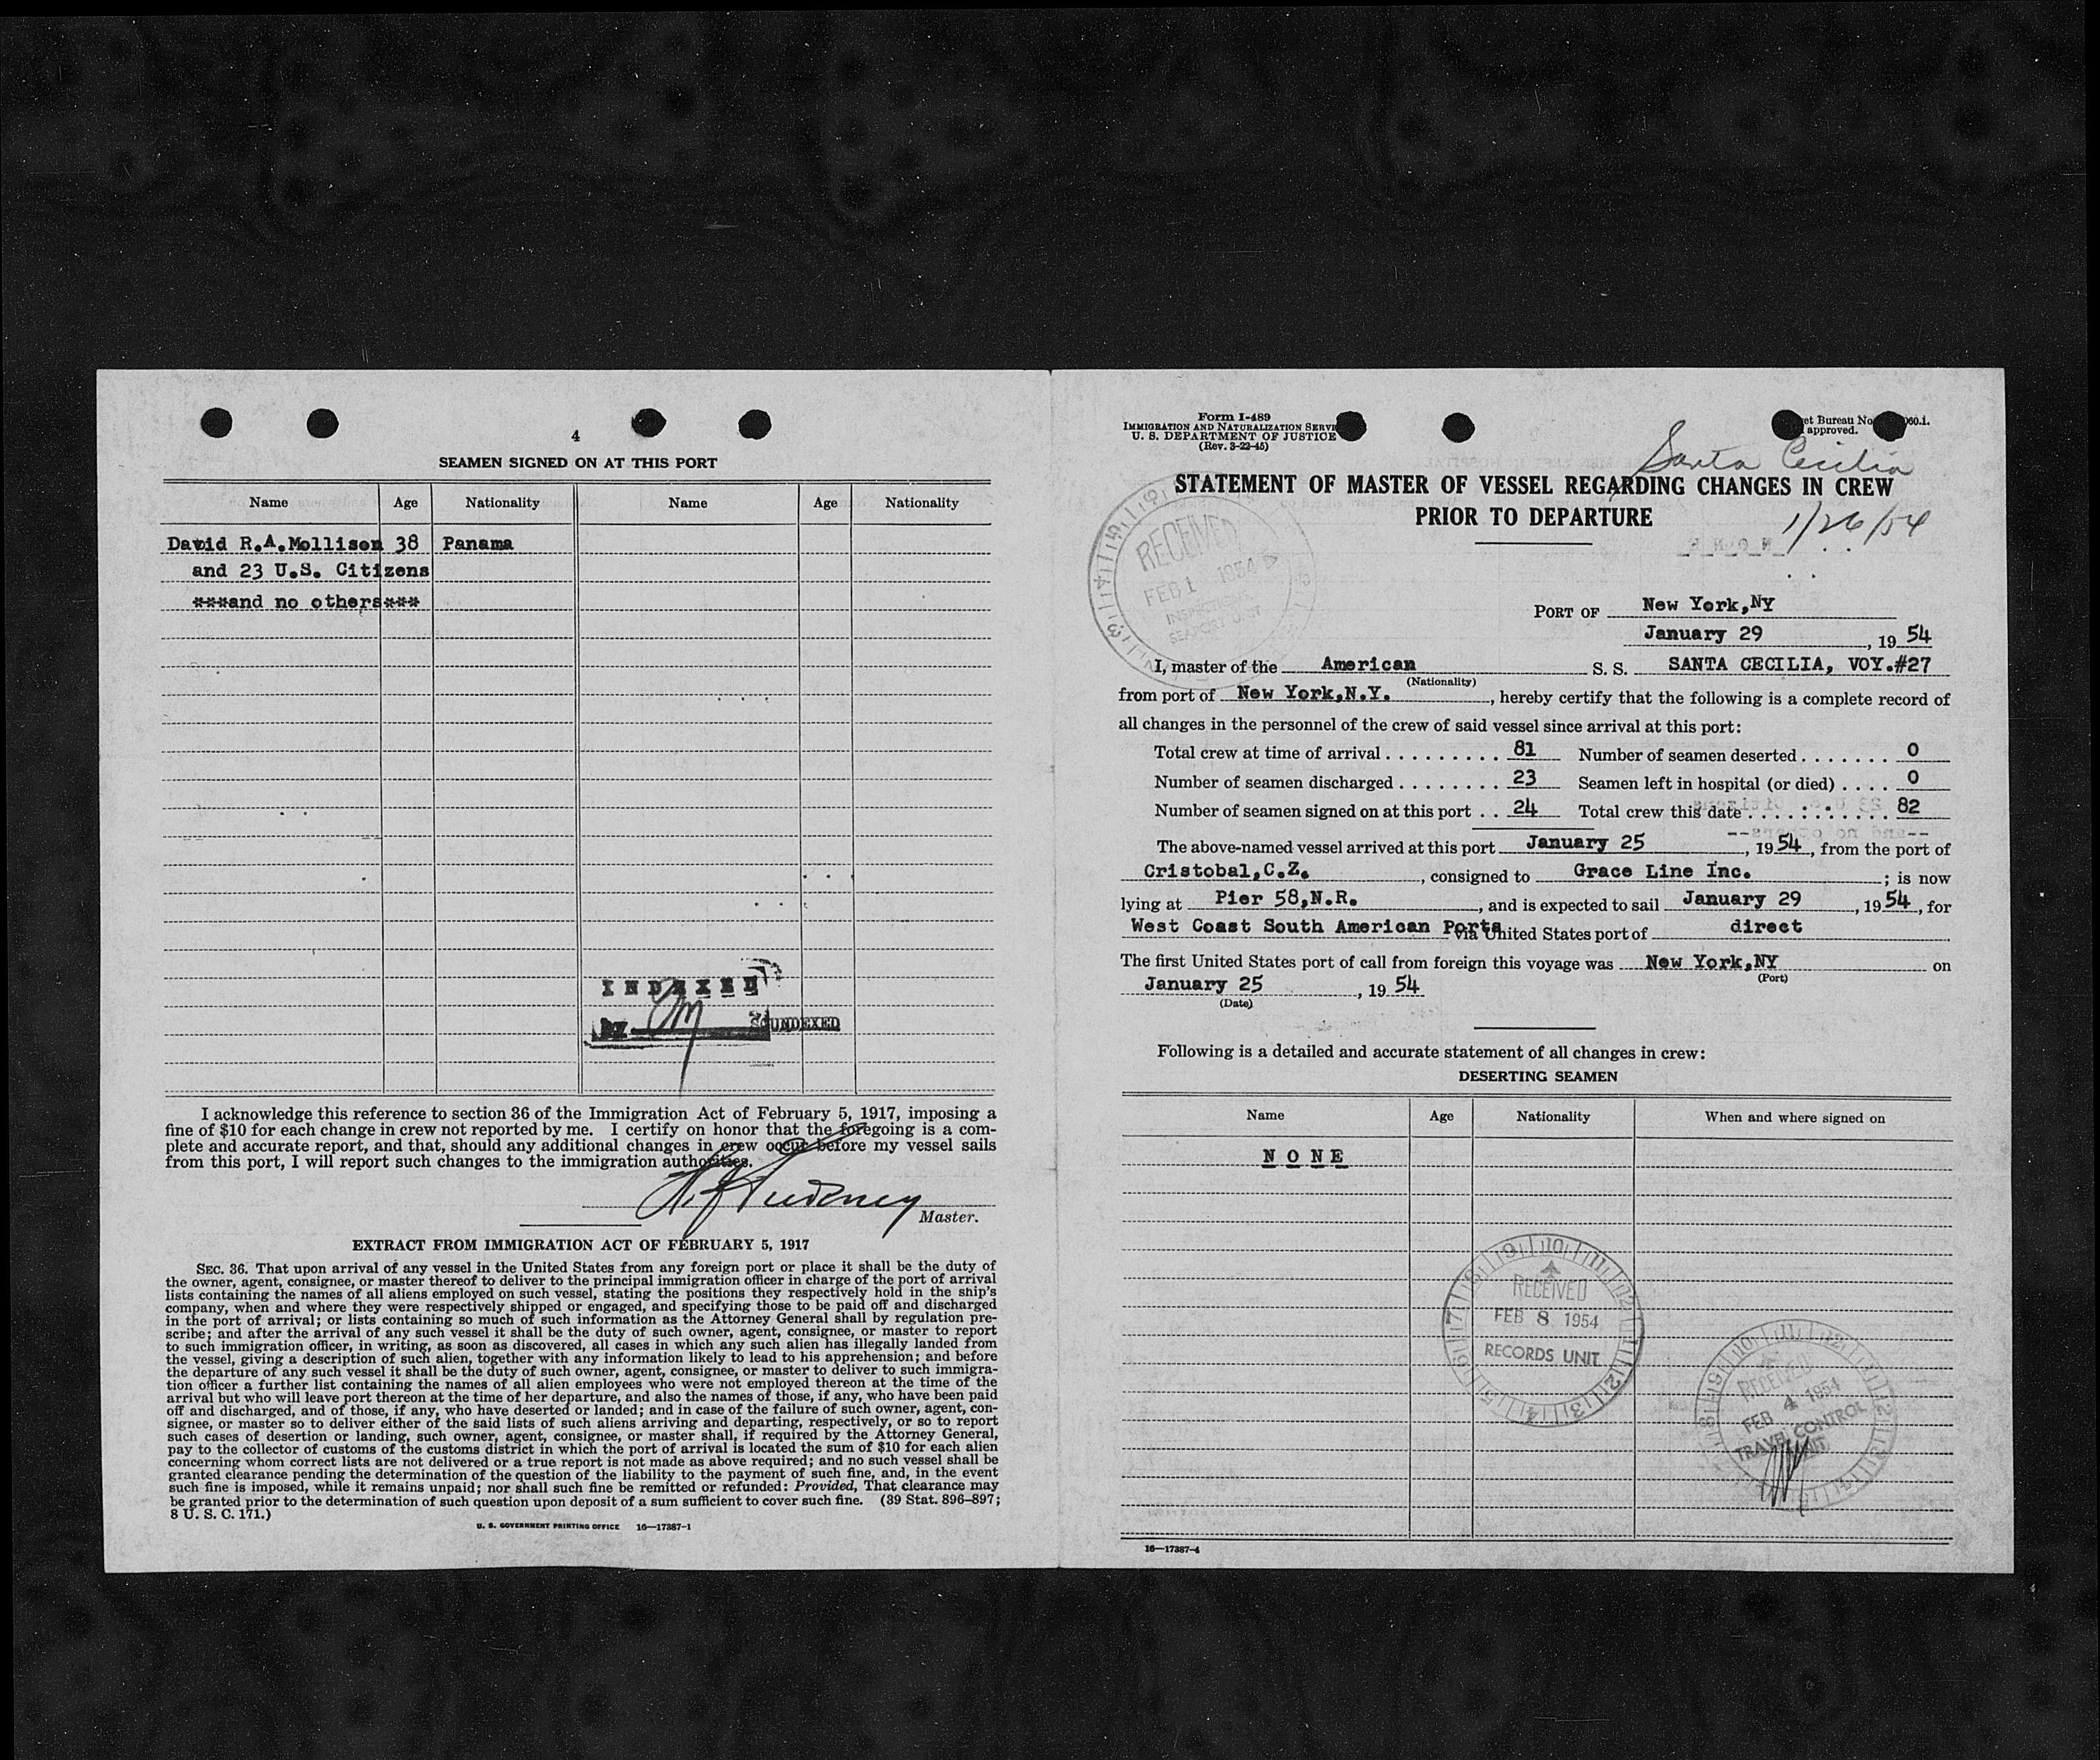 4
SEAMEN SIGNED ON AT THIS PORT
Name Age Nationality Name Age Nationality
David R.A.Mollison 38 Panama
and 23 U.S. Citizens
***and no others***
INDEXED
BY
SOUNDEXED
I acknowledge this reference to section 36 of the Immigration Act of February 5, 1917, imposing a
fine of $10 for each change in crew not reported by me. I certify on honor that the foregoing is a com-
plete and accurate report, and that, should any additional changes in crew occur before my vessel sails
from this port, I will report such changes to the immigration authorities.
Master.
EXTRACT FROM IMMIGRATION ACT OF FEBRUARY 5, 1917
SEC. 36. That upon arrival of any vessel in the United States from any foreign port or place it shall be the duty of
the owner, agent, consignee, or master thereof to deliver to the principal immigration officer in charge of the port of arrival
lists containing the names of all aliens employed on such vessel, stating the positions they respectively hold in the ship's
company, when and where they were respectively shipped or engaged, and specifying those to be paid off and discharged
in the port of arrival; or lists containing so much of such information as the Attorney General shall by regulation pre-
scribe; and after the arrival of any such vessel it shall be the duty of such owner, agent, consignee, or master to report
to such immigration officer, in writing, as soon as discovered, all cases in which any such alien has illegally landed from
the vessel, giving a description of such alien, together with any information likely to lead to his apprehension; and before
the departure of any such vessel it shall be the duty of such owner, agent, consignee, or master to deliver to such immigra-
tion officer a further list containing the names of all alien employees who were not employed thereon at the time of the
arrival but who will leave port thereon at the time of her departure, and also the names of those, if any, who have been paid
off and discharged, and of those, if any, who have deserted or landed; and in case of the failure of such owner, agent, con-
signee, or master so to deliver either of the said lists of such aliens arriving and departing, respectively, or so to report
such cases of desertion or landing, such owner, agent, consignee, or master shall, if required by the Attorney General,
pay to the collector of customs of the customs district in which the port of arrival is located the sum of $10 for each alien
concerning whom correct lists are not delivered or a true report is not made as above required; and no such vessel shall be
granted clearance pending the determination of the question of the liability to the payment of such fine, and, in the event
such fine is imposed, while it remains unpaid; nor shall such fine be remitted or refunded: Provided, That clearance may
be granted prior to the determination of such question upon deposit of a sum sufficient to cover such fine. (39 Stat. 896–897;
8 U. S. C. 171.)
U. S. GOVERNMENT PRINTING OFFICE 16—17387-1
Form I-489
IMMIGRATION AND NATURALIZATION SERVI
U. S. DEPARTMENT OF JUSTICE
(Rev. 3-22-45)
et Bureau No 060.1.
approved.
Santa Cecilia
STATEMENT OF MASTER OF VESSEL REGARDING CHANGES IN CREW
PRIOR TO DEPARTURE
1/26/54
RECEIVED
FEB 1 1954
PORT OF New York,NY
January 29, 1954
I, master of the American S. S. SANTA CECILIA, VOY.#27
(Nationality)
from port of New York,N.Y., hereby certify that the following is a complete record of
all changes in the personnel of the crew of said vessel since arrival at this port:
Total crew at time of arrival 81 Number of seamen deserted 0
Number of seamen discharged 23 Seamen left in hospital (or died) 0
Number of seamen signed on at this port 24 Total crew this date 82
The above-named vessel arrived at this port January 25, 1954, from the port of
Cristobal,C.Z., consigned to Grace Line Inc.; is now
lying at Pier 58,N.R., and is expected to sail January 29, 1954, for
West Coast South American Ports via United States port of direct
The first United States port of call from foreign this voyage was New York,NY on
(Port)
January 25, 1954
(Date)
Following is a detailed and accurate statement of all changes in crew:
DESERTING SEAMEN
Name Age Nationality When and where signed on
NONE
RECEIVED
FEB 8 1954
RECORDS UNIT
RECEIVED
FEB 4 1954
TRAVEL CONTROL
UNIT
16—17387-4